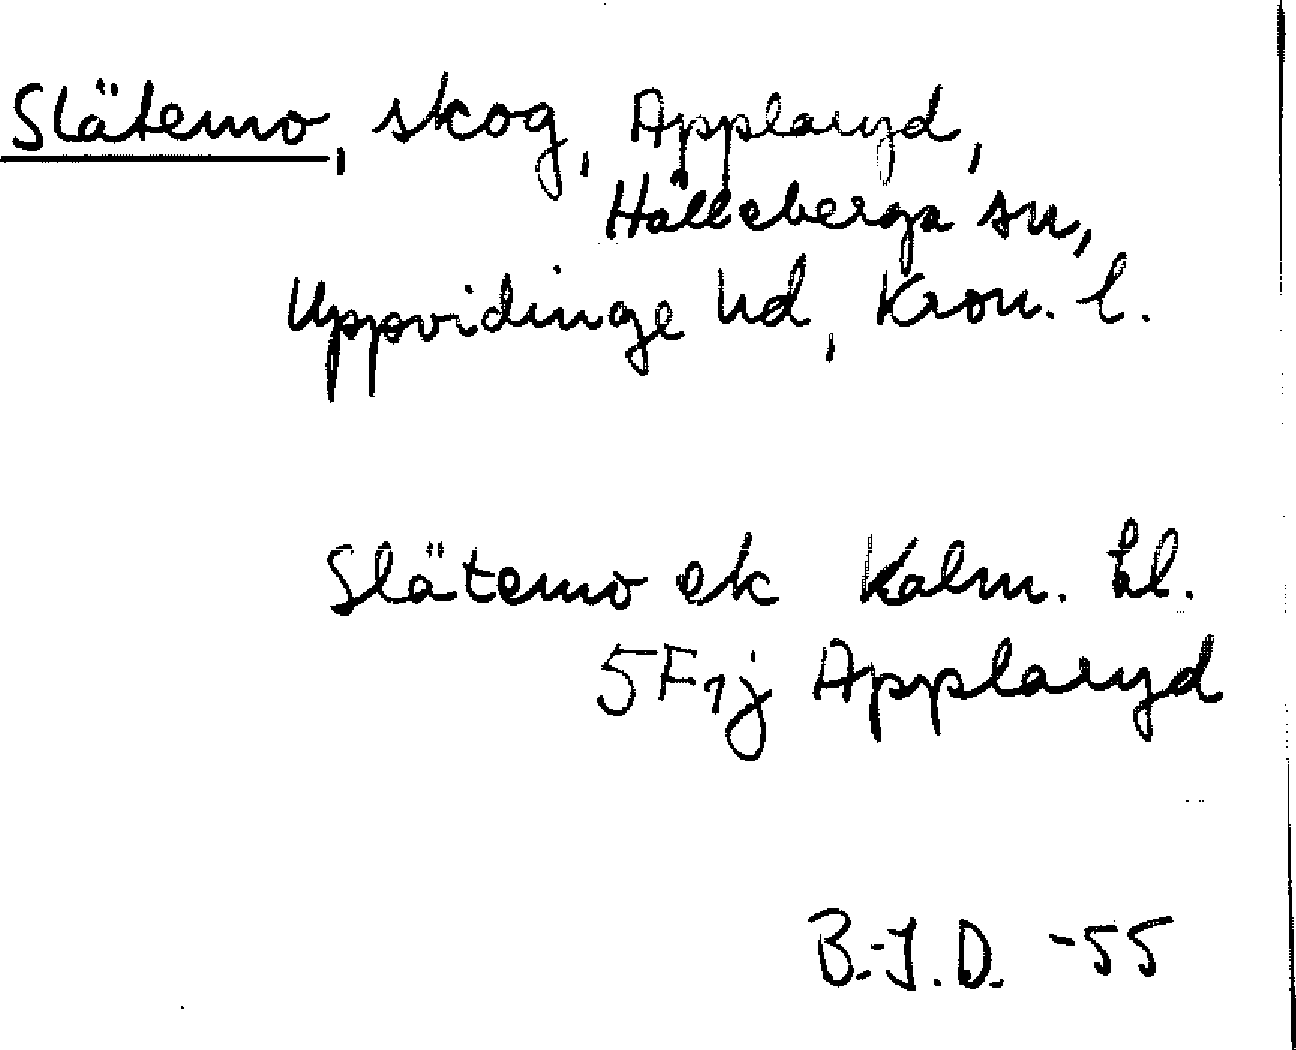 Slätemo, skog, Applaryd,
Hälleberga sn,
Uppvidinge hd, Kron. l.
Slätemo ek Kalm. bl.
5F1j Applaryd
B.-J.D. -55